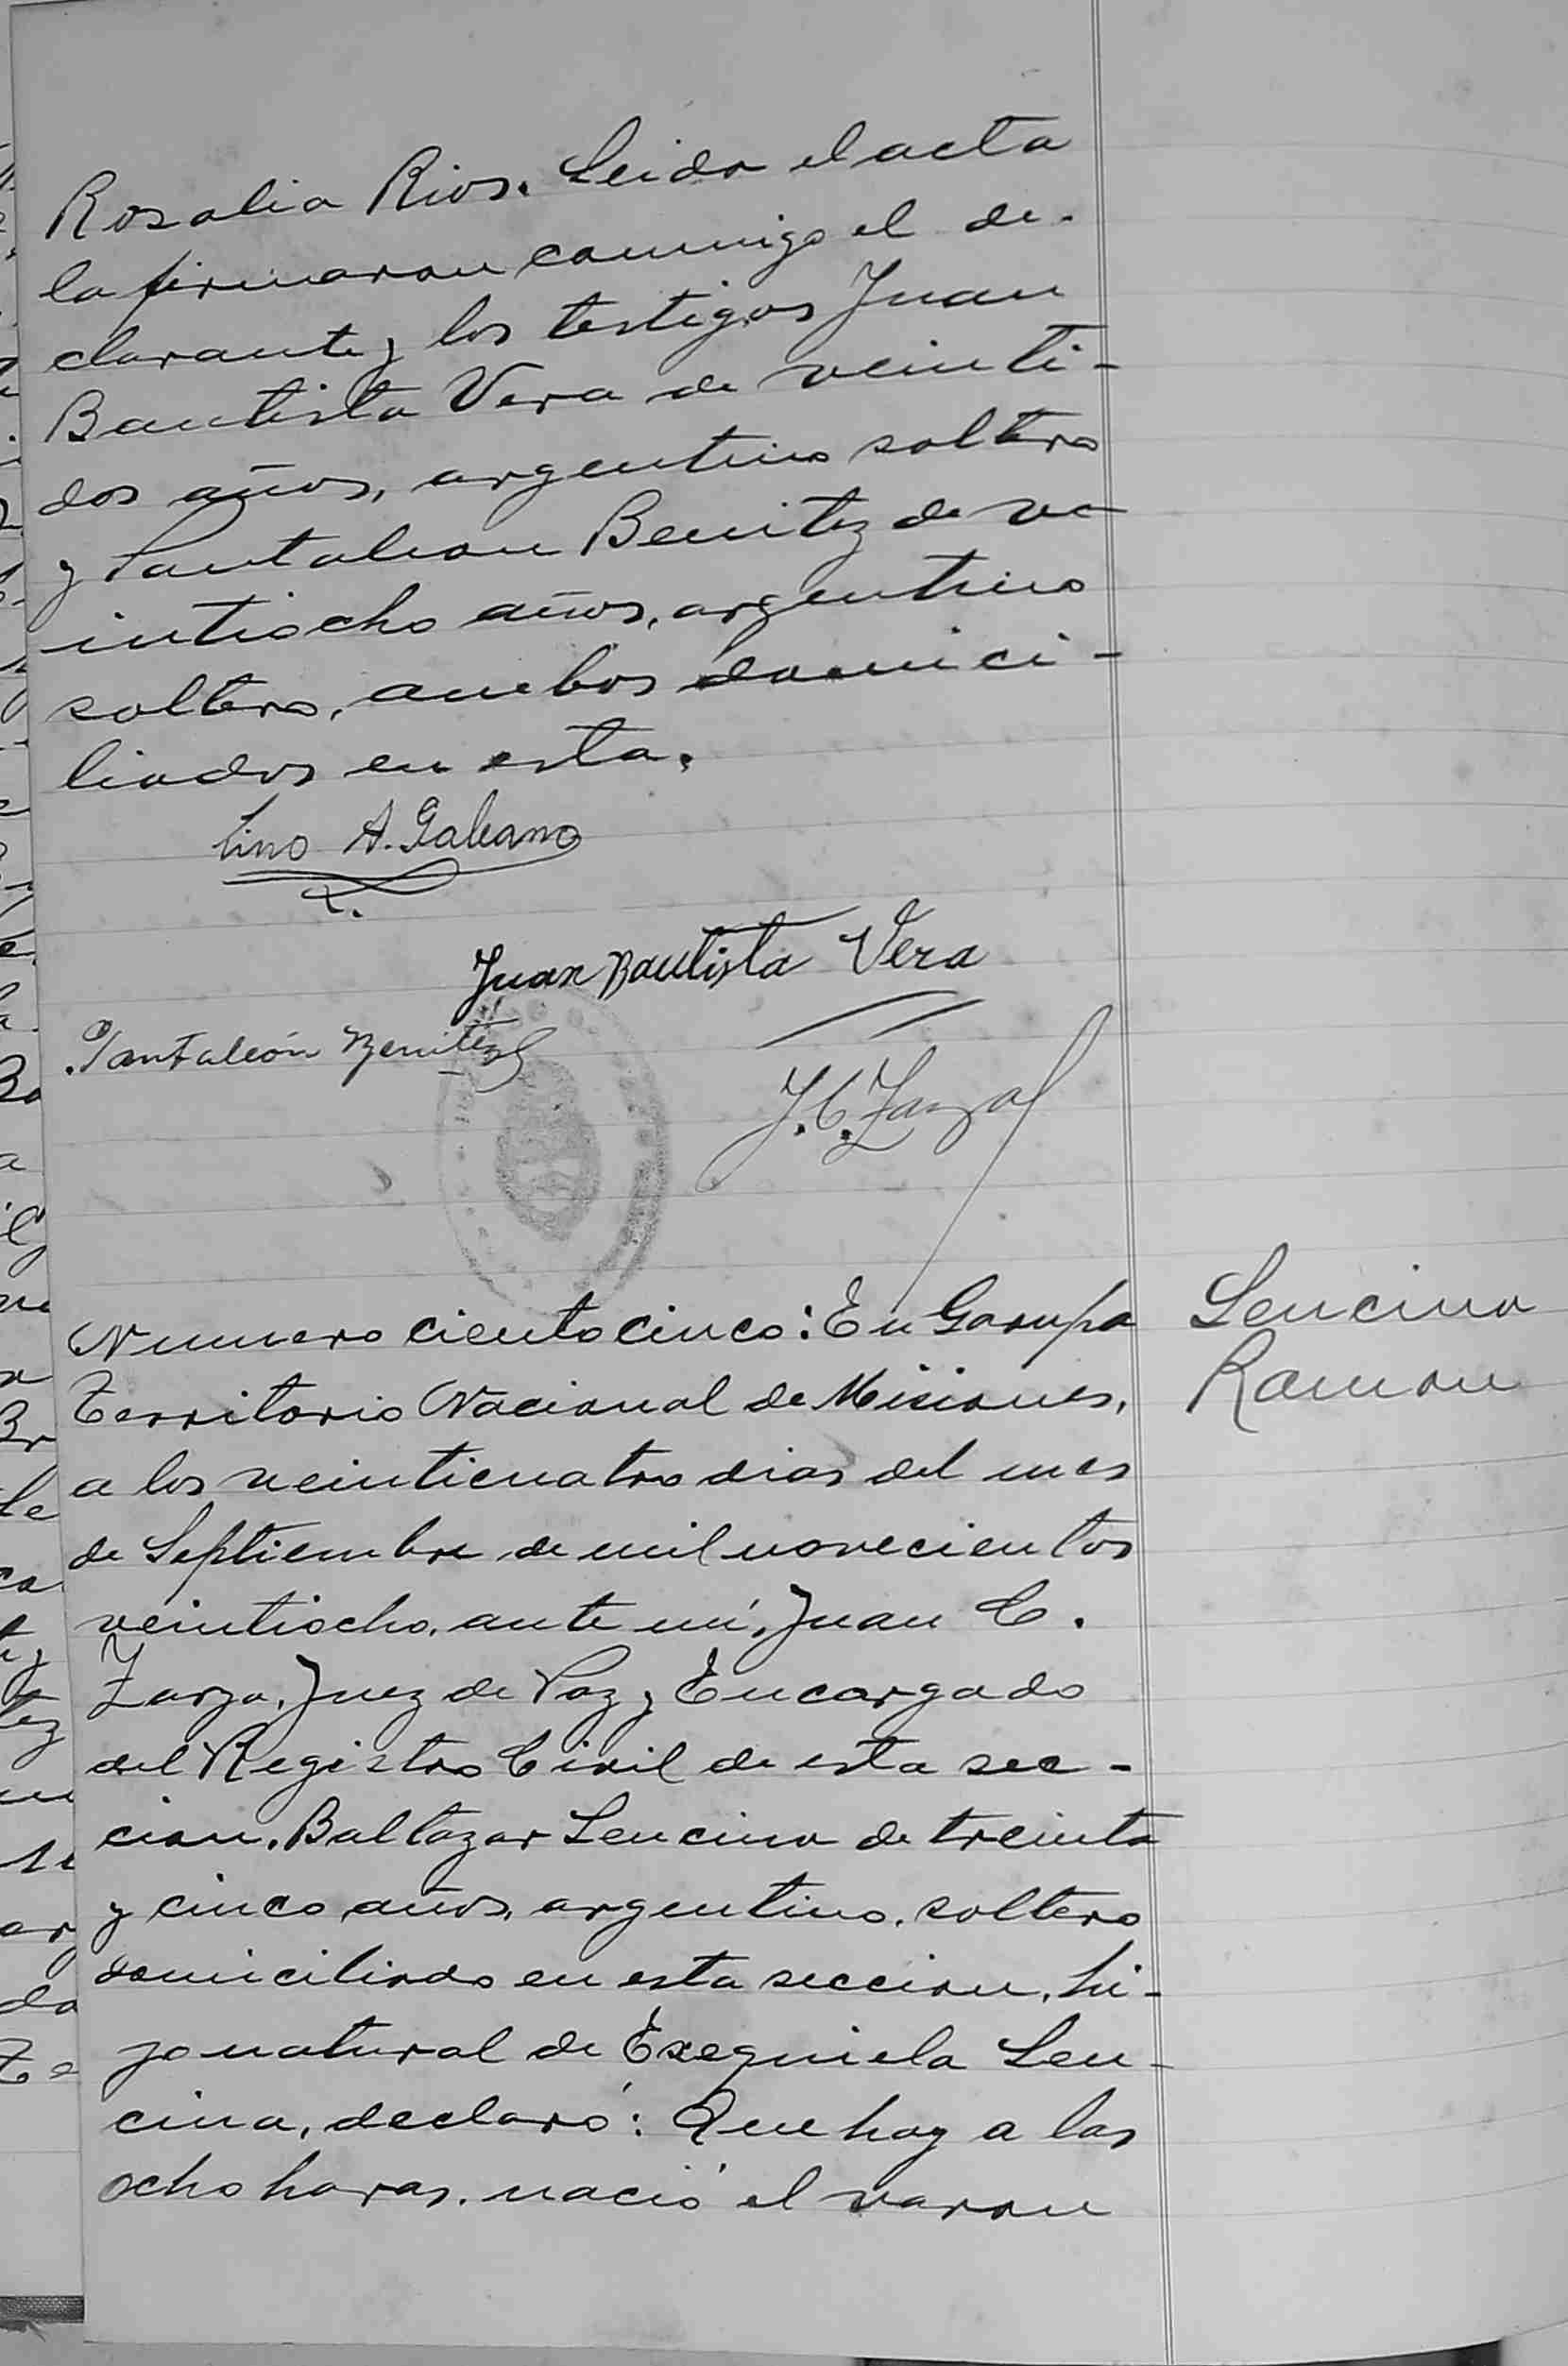 Rosalia Rios. Leida el acta
la firmaron conmigo el de-
clarante y los testigos Juan
Bautista Vera de veinti-
dos años, argentino soltero
y Pantaleon Benitez de ve-
intiocho años, argentino
soltero, ambos domici-
liados en esta.
Lino A. Galeano
Juan Bautista Vera
Pantaleón Benitez
J. C. Zarza
Numero ciento cinco: En Garupa
Territorio Nacional de Misiones,
a los veinticuatro dias del mes
de Septiembre de mil novecientos
veintiocho, ante mí, Juan C.
Zarza, Juez de Paz y Encargado
del Registro Civil de esta sec-
cion, Baltazar Lencina de treinta
y cinco años, argentino, soltero
domiciliado en esta seccion, hi-
jo natural de Exequiela Len-
cina, declaró: Que hoy a las
ocho horas, nació el varon
Lencina
Ramon